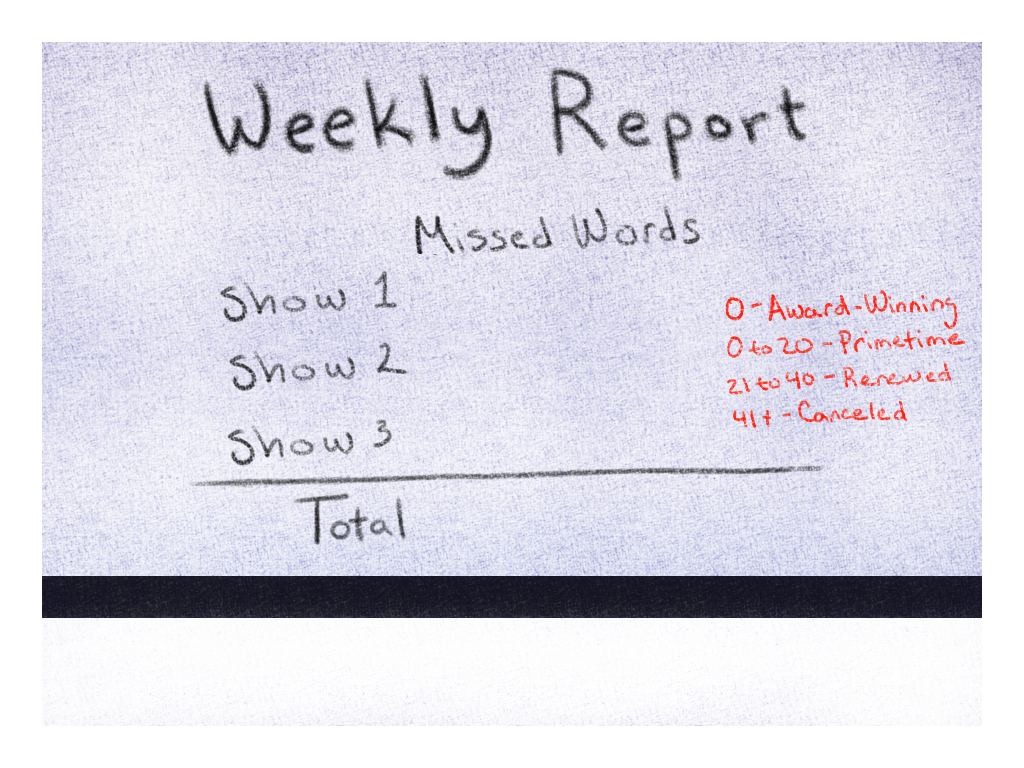 Weekly Report
Missed Words
Show 1
Show 2
Show 3
Total
0 - Award-Winning
0 to 20 - Primetime
21 to 40 - Renewed
41+ - Canceled